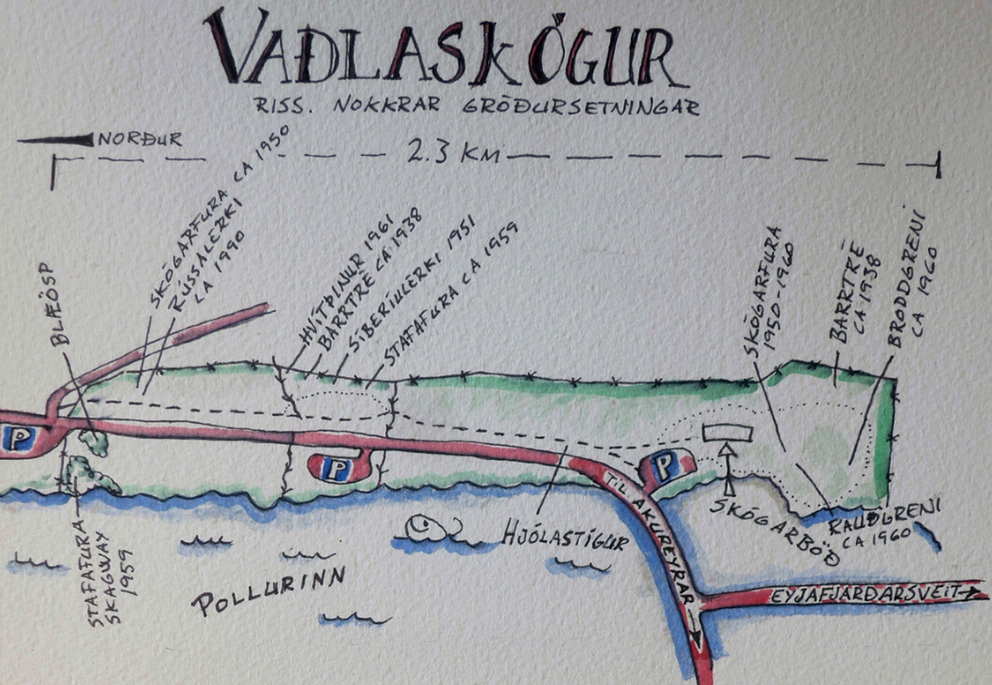 VAÐLASKÓGUR
RISS. NOKKRAR GRÓÐURSETNINGAR
NORÐUR
2.3 KM
BLÆÖSP
SKÓGARFURA CA 1950
RÚSSALERKI
CA 1990
HVÍTÞINUR 1961
BARRTRÉ CA 1938
SÍBERÍULERKI 1951
STAFAFURA CA 1959
SKÓGARFURA
1950-1960
BARRTRÉ
CA 1938
BRODDGRENI
CA 1960
P
P
P
STAFAFURA
SKAGWAY
1959
POLLURINN
HJÓLASTÍGUR
TIL AKUREYRAR
SKÓGARBÖÐ
RAUÐGRENI
CA 1960
EYJAFJARÐARSVEIT